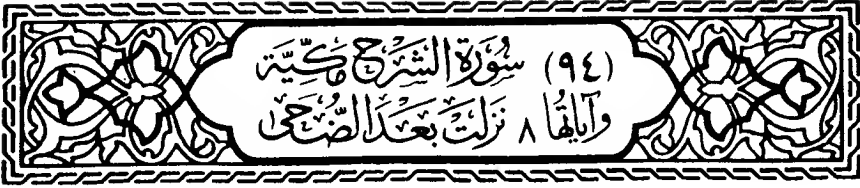 (٩٤) سُورَة الشرح مَكيَّة
وآياتها ٨ نزلت بَعَد الضُّحَى